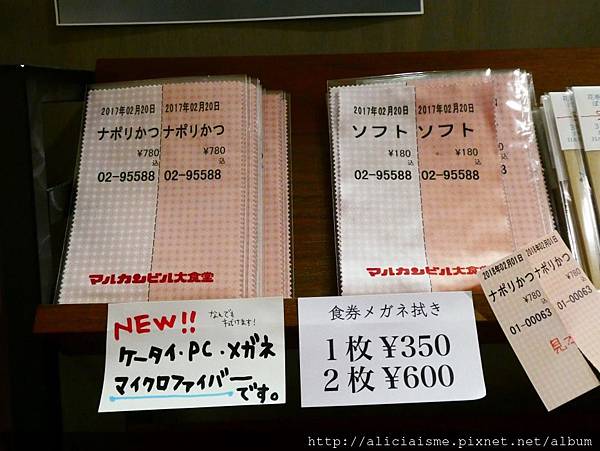 2017年02月20日 2017年02月20日
ナポリかつ ナポリかつ
¥780 ¥780
込 込
02-95588 02-95588
マルカンビル大食堂
2017年02月20日 2017年02月20日
ソフト ソフト
¥180 ¥180
込 込
02-95588 02-95588
マルカンビル大食堂
2018年02月01日 2018年02月01日
ナポリかつ ナポリかつ
¥780 ¥780
込 込
01-00063 01-00063
NEW!!
なんでも
ふけます!
ケータイ・PC・メガネ
マイクロファイバーです。
食券メガネ拭き
1枚¥350
2枚¥600
http://aliciaisme.pixnet.net/album